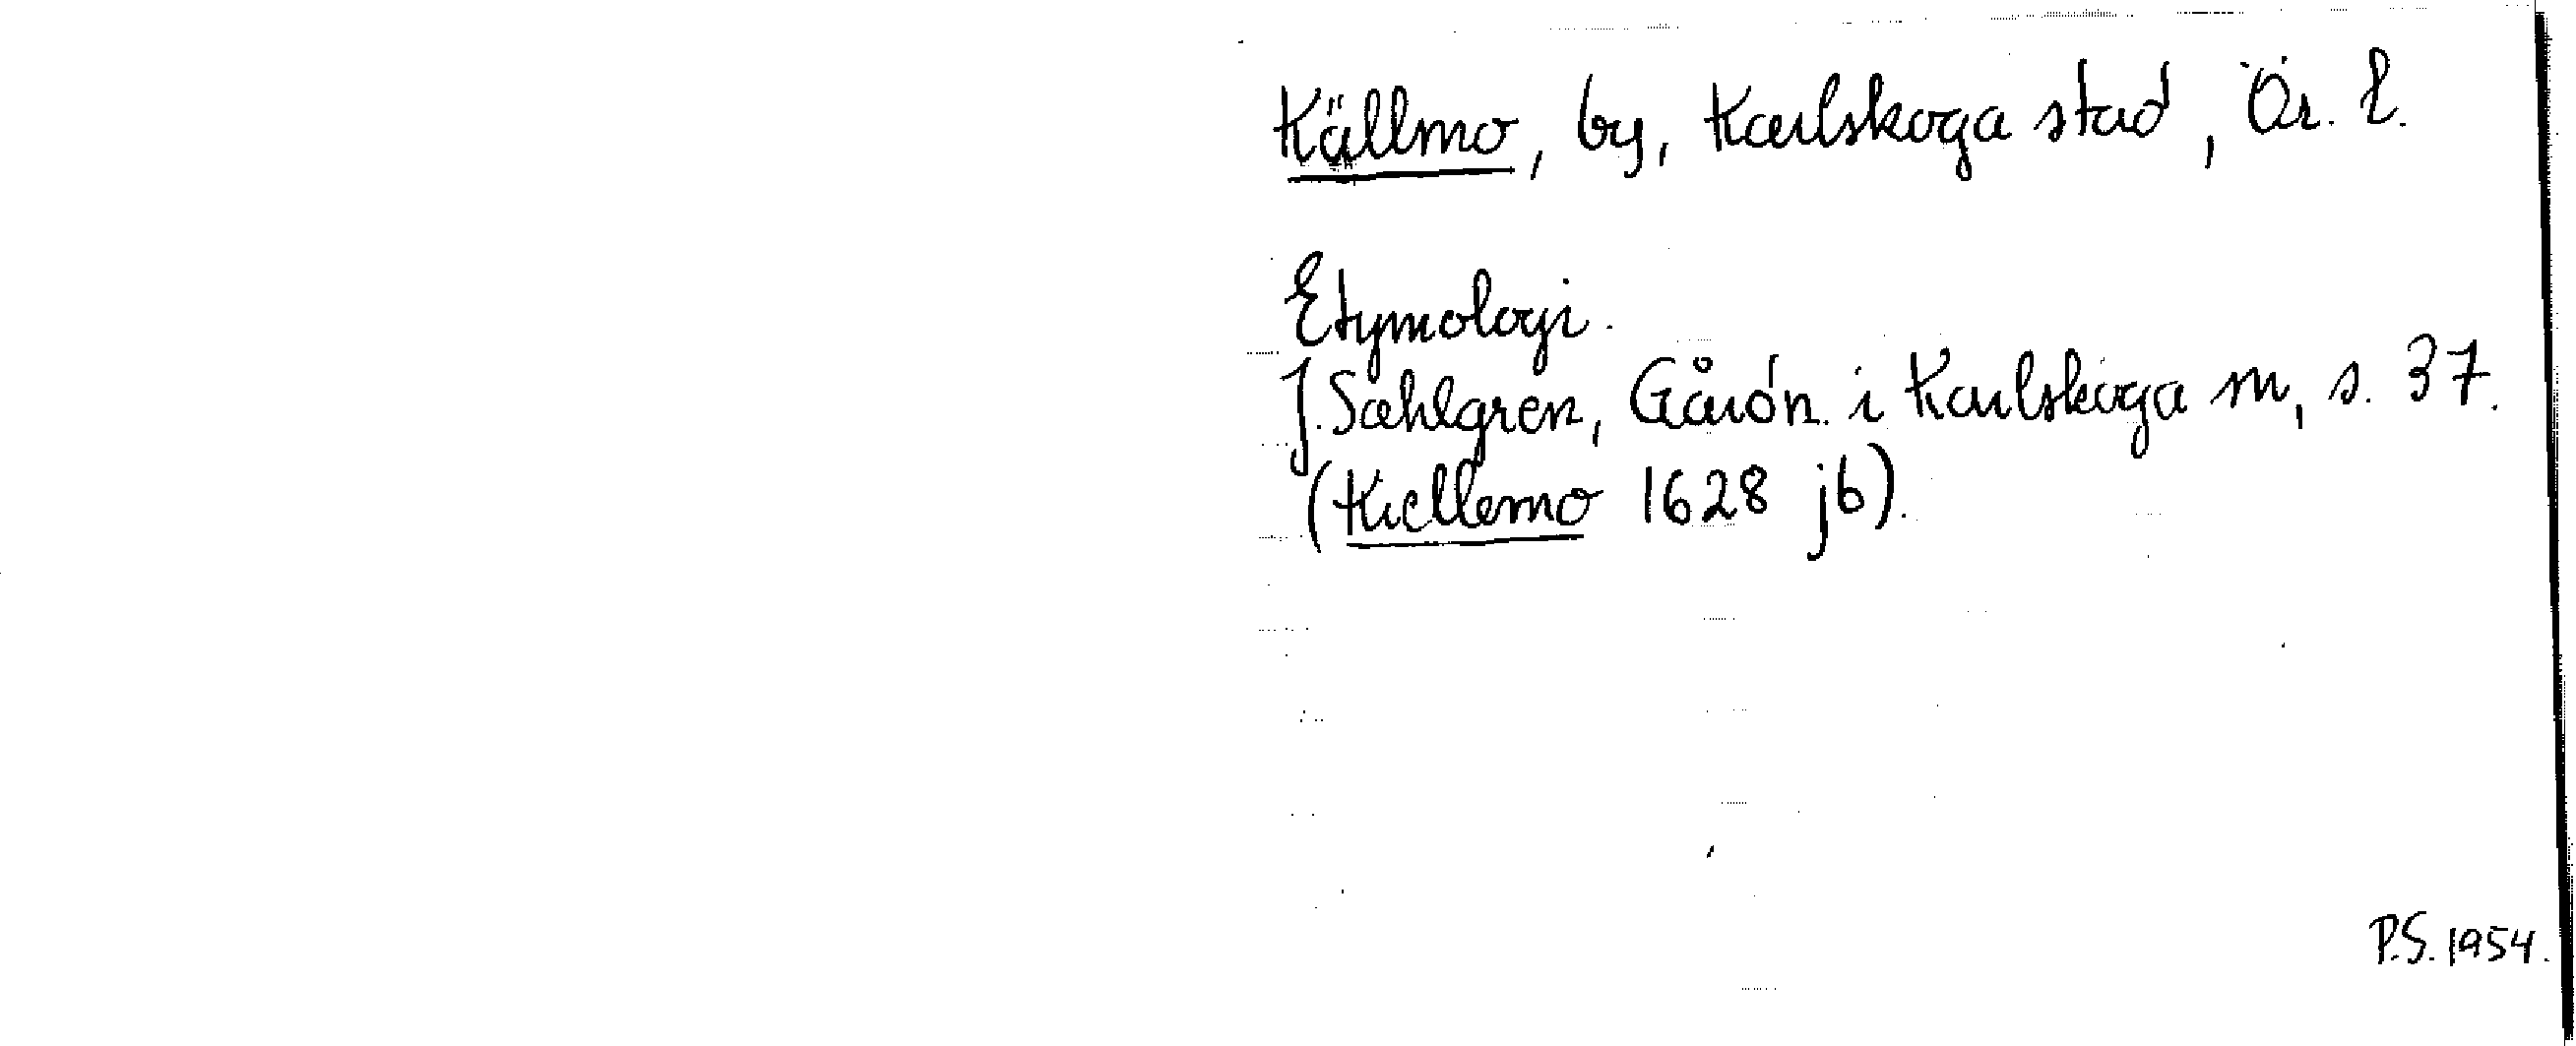 Källmo, by, Karlskoga stad, Ör. l.
Etymologi.
J. Sahlgren, Gårdn. i Karlskoga m, s. 37.
(Kiellemo 1628 jb).
P.S. 1954.